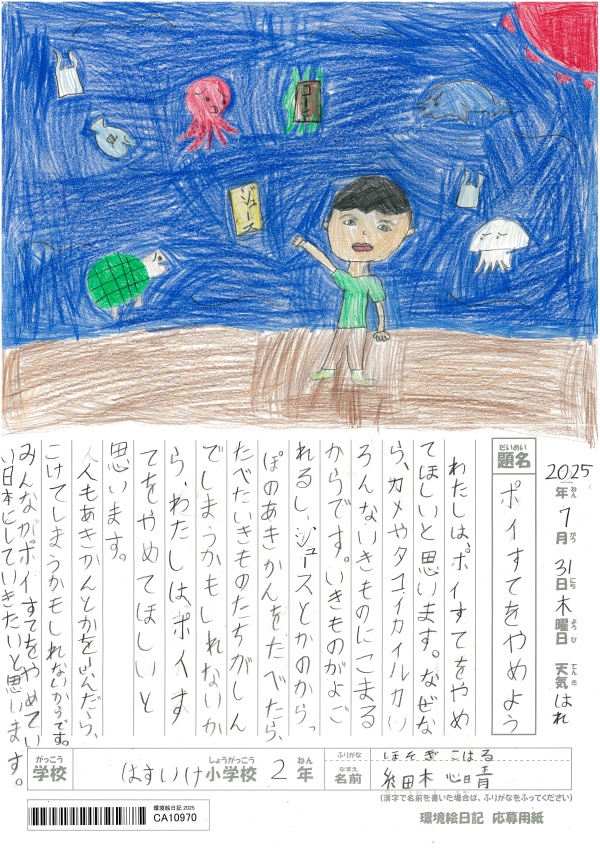 コーヒー
ジュース
2025年7月31日木曜日 天気はれ
ねん がつ にち ようび てんき
だいめい
題名
ポイすてをやめよう
わたしは、ポイすてをやめ
てほしいと思います。なぜな
ら、カメやタコ、イカイルカい
ろんないきものにこまる
からです。いきものがよご
れるし、ジュースとかのからっ
ぽのあきかんをたべたら、
たべたいきものたちがしん
でしまうかもしれないか
ら、わたしは、ポイす
てをやめてほしいと
思います。
人もあきかんとかをふんだら、
こけてしまうかもしれないからです。
みんながポイすてをやめてい
い日本にしていきたいと思います。
がっこう しょうがっこう ねん
学校 はすいけ小学校 2年
ふりがな ほそぎ こはる
なまえ
名前 細木 心晴
(漢字で名前を書いた場合は、ふりがなをふってください)
環境絵日記 2025
CA10970
環境絵日記 応募用紙